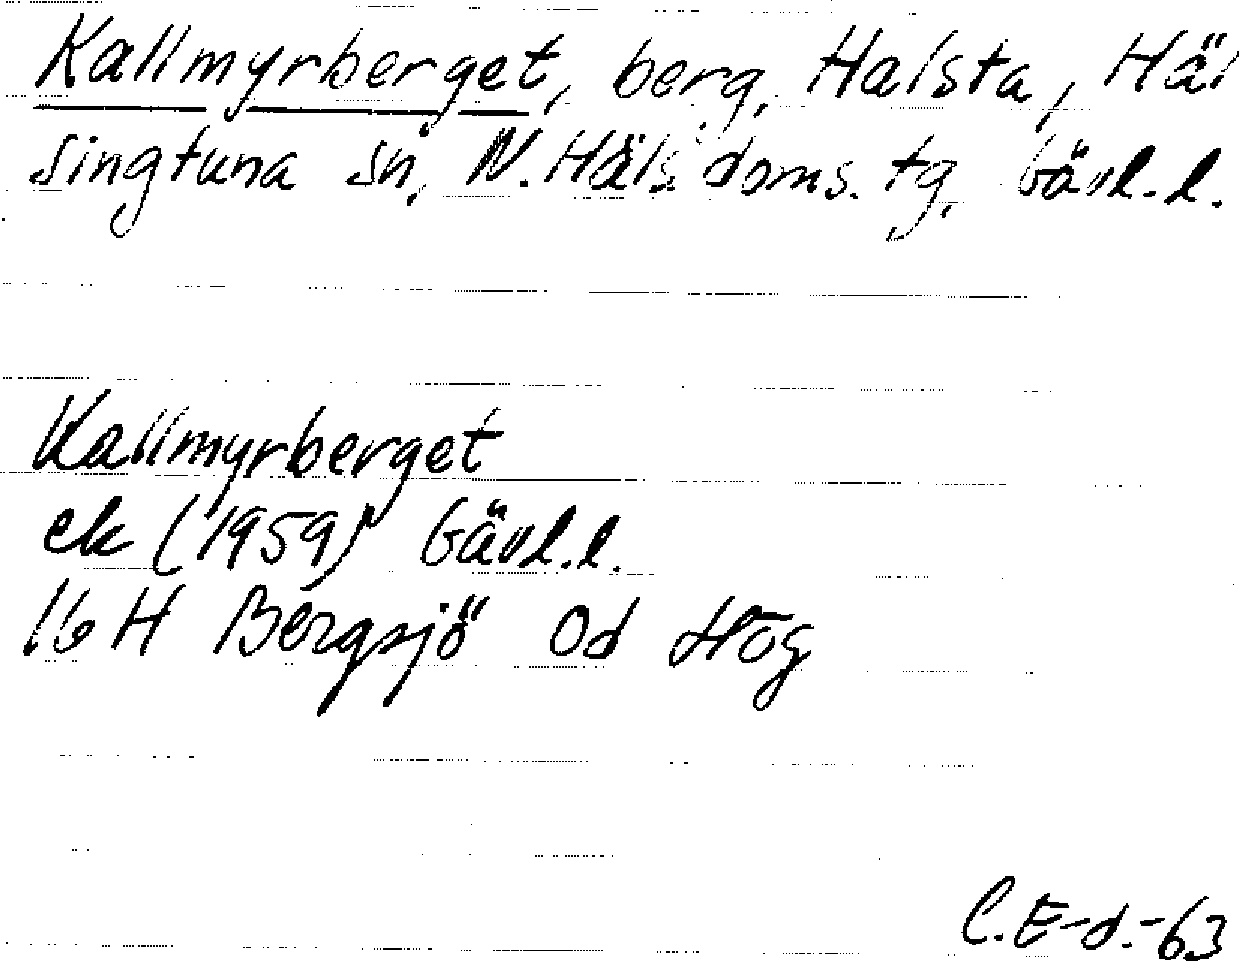 Kallmyrberget, berg, Halsta, Häl
singtuna sn, N. Häls. doms. tg, Gävl. l.
Kallmyrberget
ek (1959) Gävl. l.
16 H Bergsjö Od Hög
C. E-d. -63